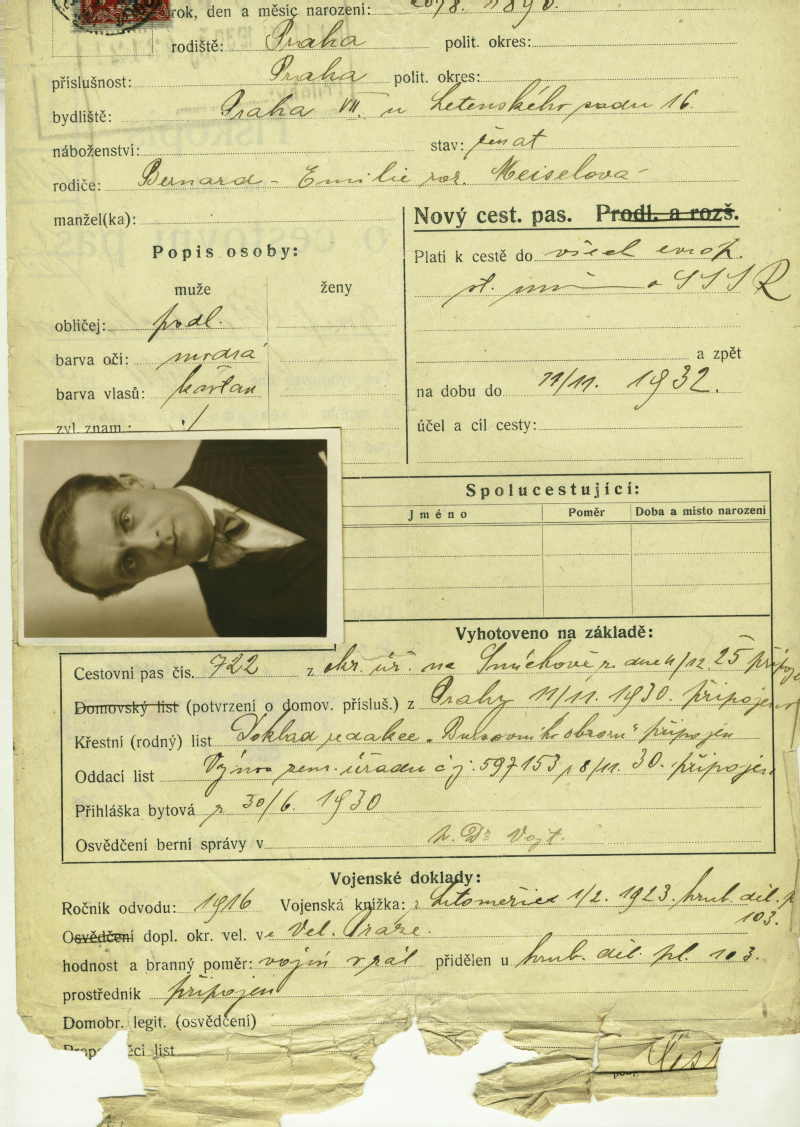 rok, den a měsíc narození:
rodiště: Praha polit. okres:
příslušnost: Praha polit. okres:
bydliště: Praha VII. u Letenského sadu 16
náboženství: stav: ženat
rodiče: Bernard - Emilie roz. Meiselova
manžel(ka):
Nový cest. pas. Prodl. a rozš.
Platí k cestě do všech evrop.
st. mimo SSSR
a zpět
na dobu do 11/11. 1932.
účel a cíl cesty:
Popis osoby:
muže ženy
obličej: podl.
barva očí: modrá
barva vlasů: kaštan
zvl. znam.: ./
Spolucestující:
Jméno Poměr Doba a místo narození
Vyhotoveno na základě:
Cestovní pas čís. 722 z okr. úř. na Smíchově z dne 4/12. 25 připoj
Domovský list (potvrzení o domov. přísluš.) z Prahy 11/11. 1930. připojeno
Křestní (rodný) list Doklad redakce připojen
Oddací list Výnos zem. úřadu čj. 597153 z 8/11. 30. připojen
Přihláška bytová z 30/6. 1930
Osvědčení berní správy v Dr Vojt.
Vojenské doklady:
Ročník odvodu: 1916 Vojenská knížka: z Litoměřice 1/2. 1923. hrub. děl. p
103.
Osvědčení dopl. okr. vel. v Vel. Praze.
hodnost a branný poměr: vojín v zál přidělen u hrub. děl. pl. 103.
prostředník připojen
Domobr. legit. (osvědčení)
list